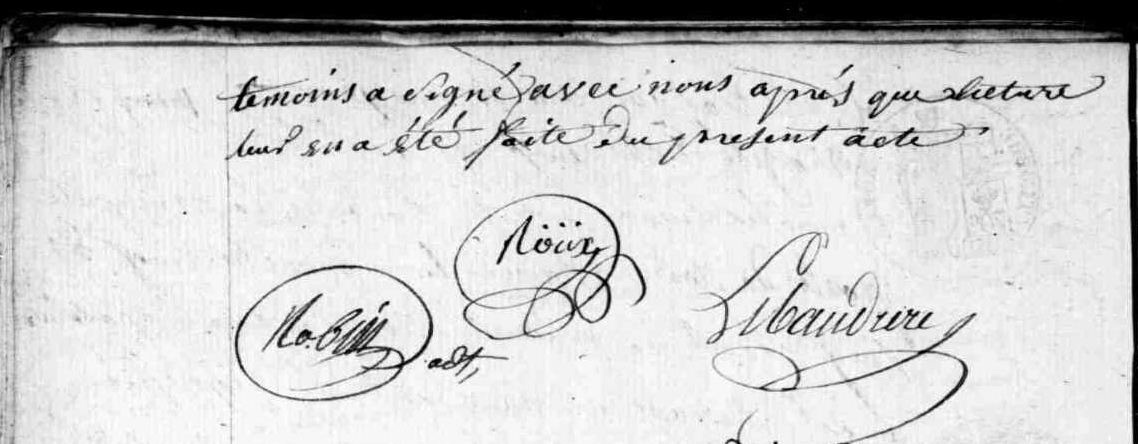 temoins a signé avec nous après que lecture
leur en a été faite du present acte
Roüx
Robin adt,
Libaudiere